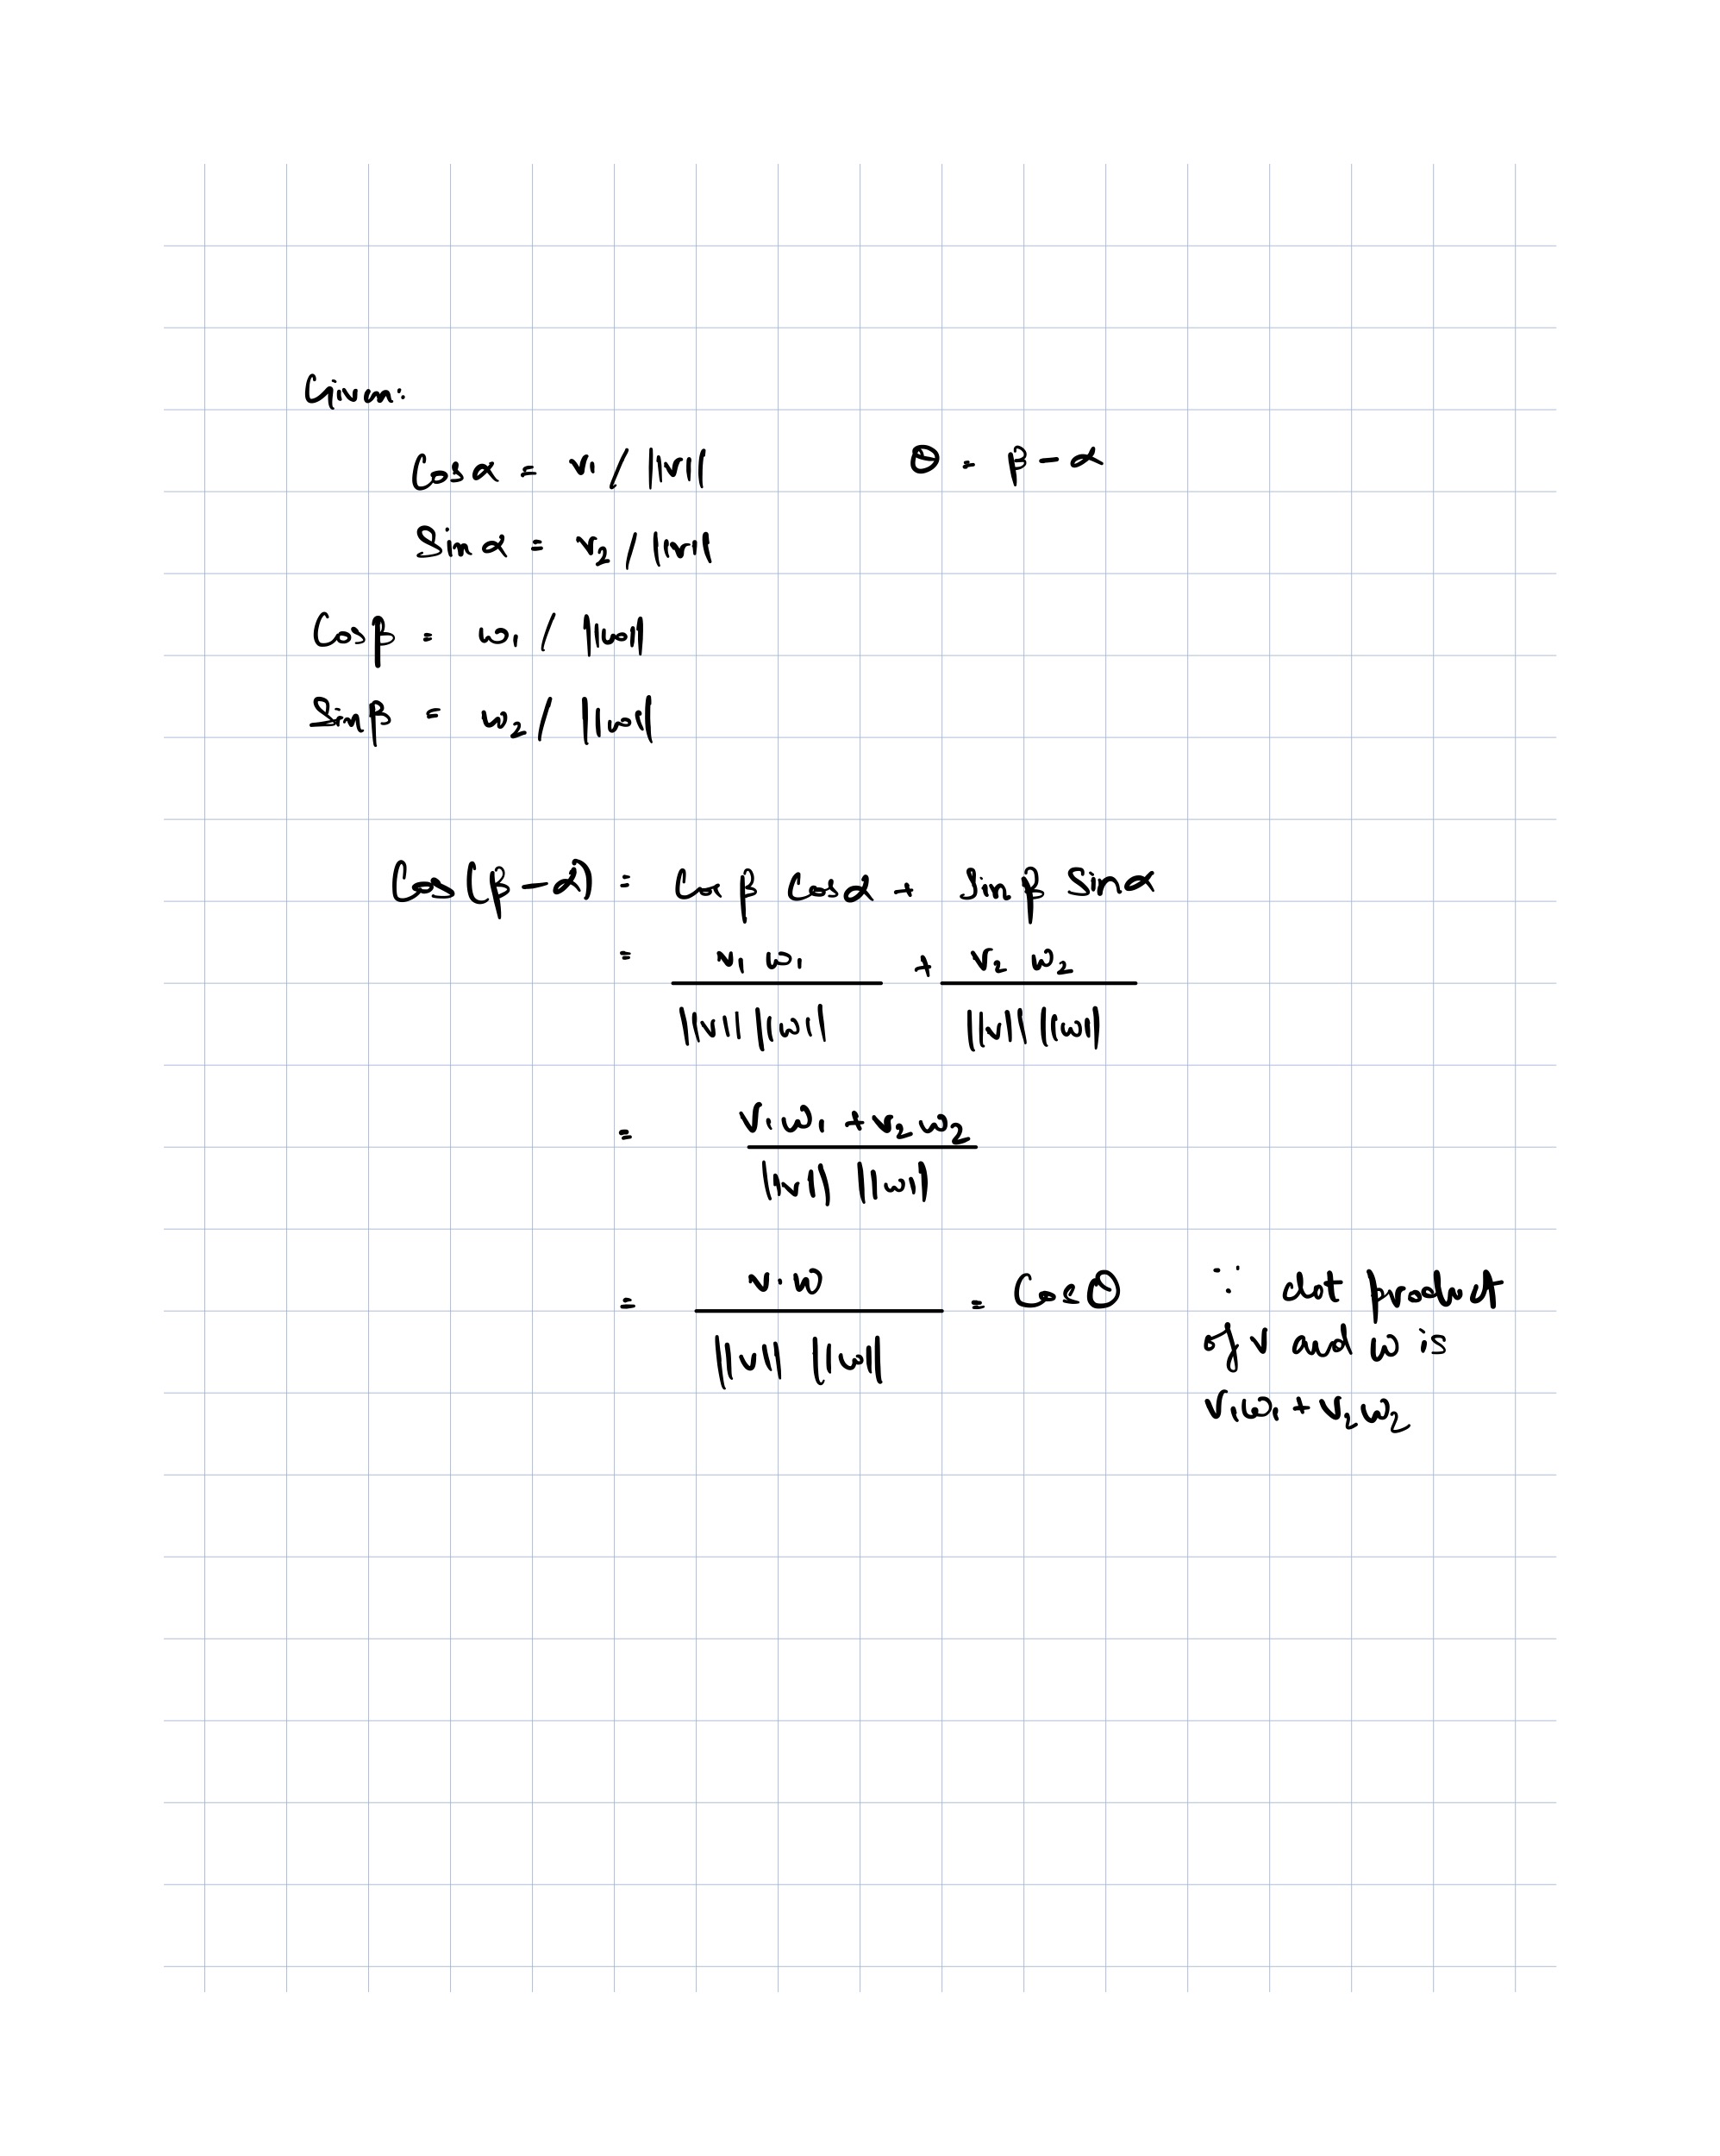 Given:
Cos α = v₁ / ||v||    θ = β - α
Sin α = v₂ / ||v||
Cos β = w₁ / ||w||
Sin β = w₂ / ||w||
Cos (β - α) = Cos β Cos α + Sin β Sin α
= v₁ w₁ / ||v|| ||w|| + v₂ w₂ / ||v|| ||w||
= v₁ w₁ + v₂ w₂ / ||v|| ||w||
= v.w / ||v|| ||w|| = Cos θ    ∵ dot product
of v and w is
v₁w₁ + v₂w₂